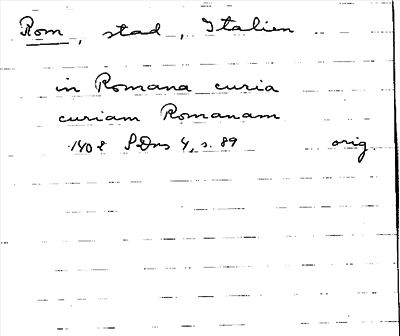 Rom, stad, Italien
in Romana curia
curiam Romanam
1408 SDns 4, s. 89 orig.